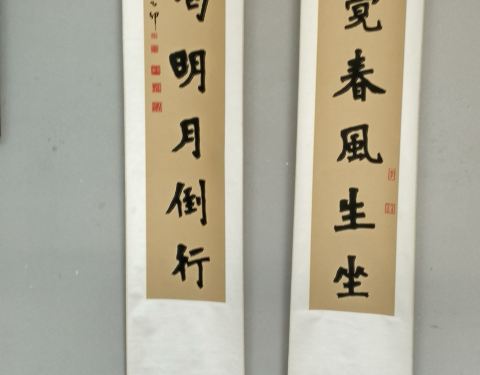 覺春風生坐
明月倒行
卯